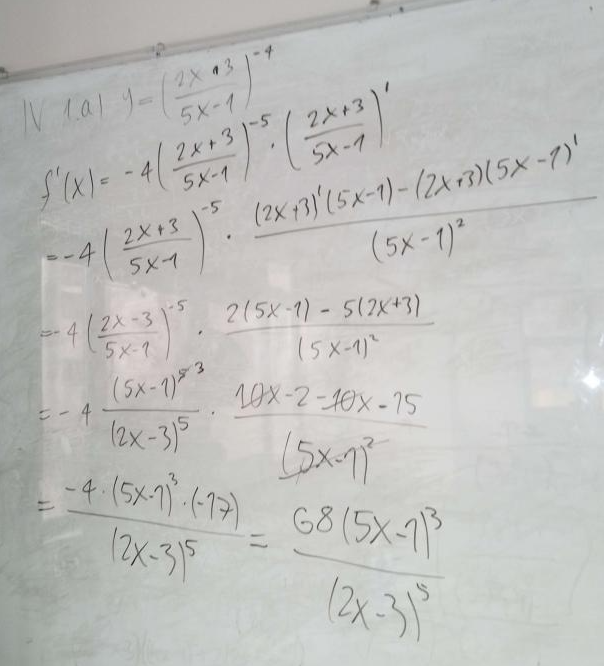 IV 1.a) y = (2x+3 / 5x-1)^-4
f'(x) = -4(2x+3 / 5x-1)^-5 · (2x+3 / 5x-1)'
= -4(2x+3 / 5x-1)^-5 · (2x+3)'(5x-1)-(2x+3)(5x-1)' / (5x-1)²
= -4(2x-3 / 5x-1)^-5 · 2(5x-1) - 5(2x+3) / (5x-1)²
= -4 (5x-1)^5 3 / (2x-3)^5 · 10x-2-10x-15 / (5x-1)²
= -4·(5x-1)³·(-17) / (2x-3)^5 = 68(5x-1)³ / (2x-3)^5